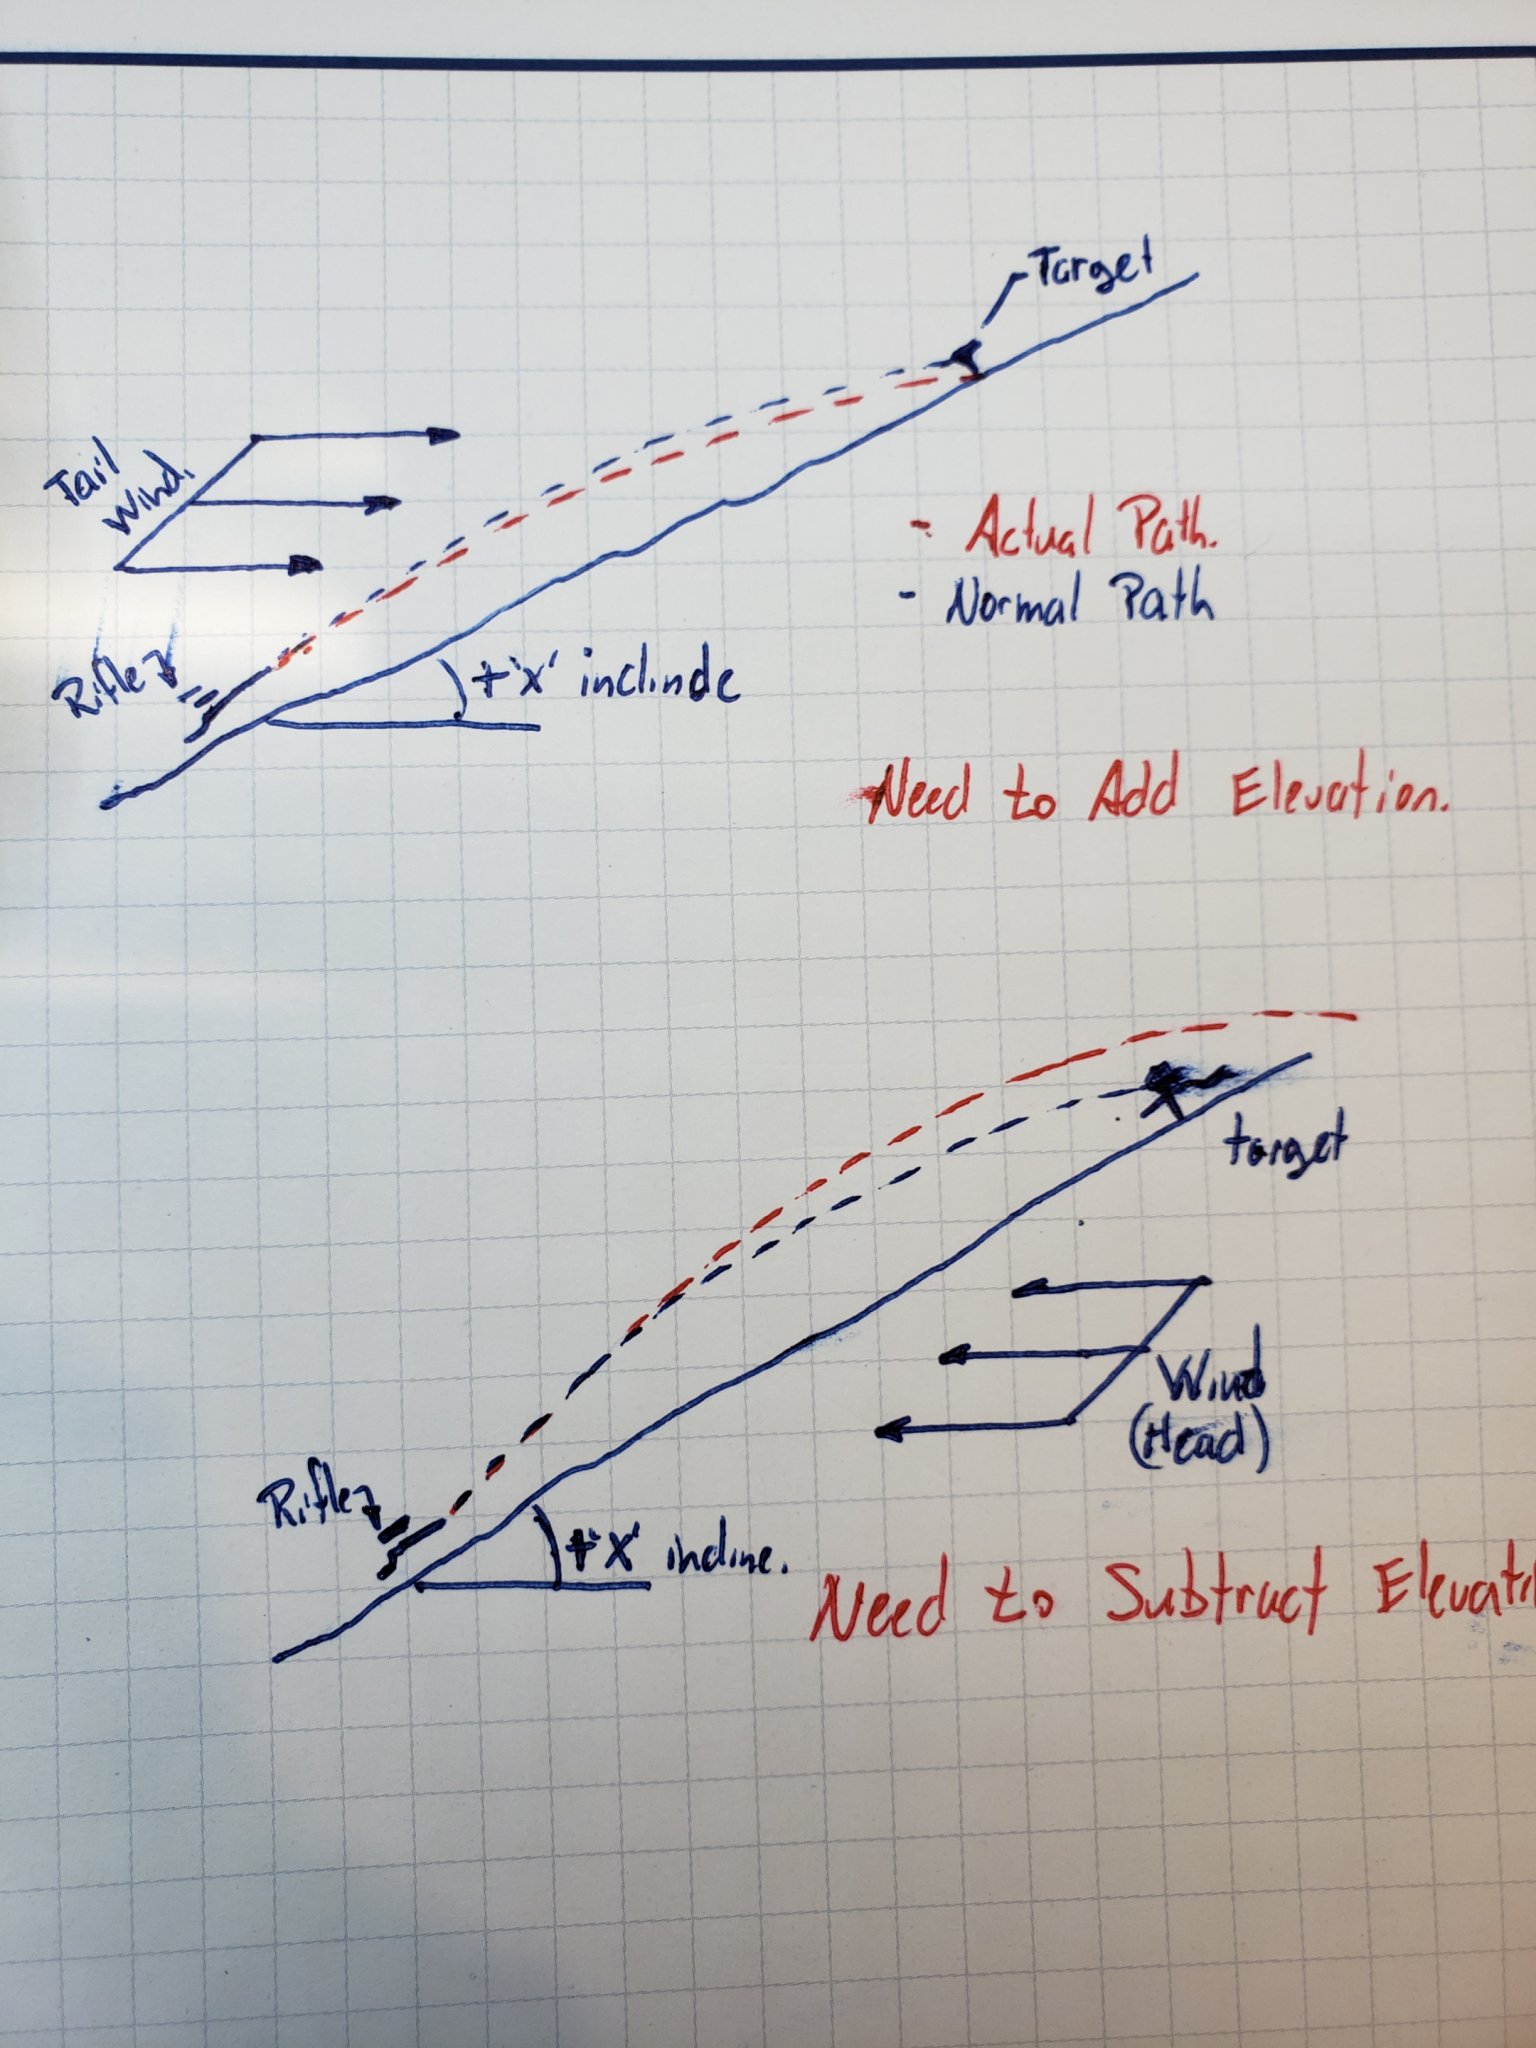 Target
Tail
Wind.
- Actual Path.
- Normal Path
Rifle
+'x' inclinde
Need to Add Elevation.
target
Wind
(Head)
Rifle
+'x' incline.
Need to Subtract Elevati